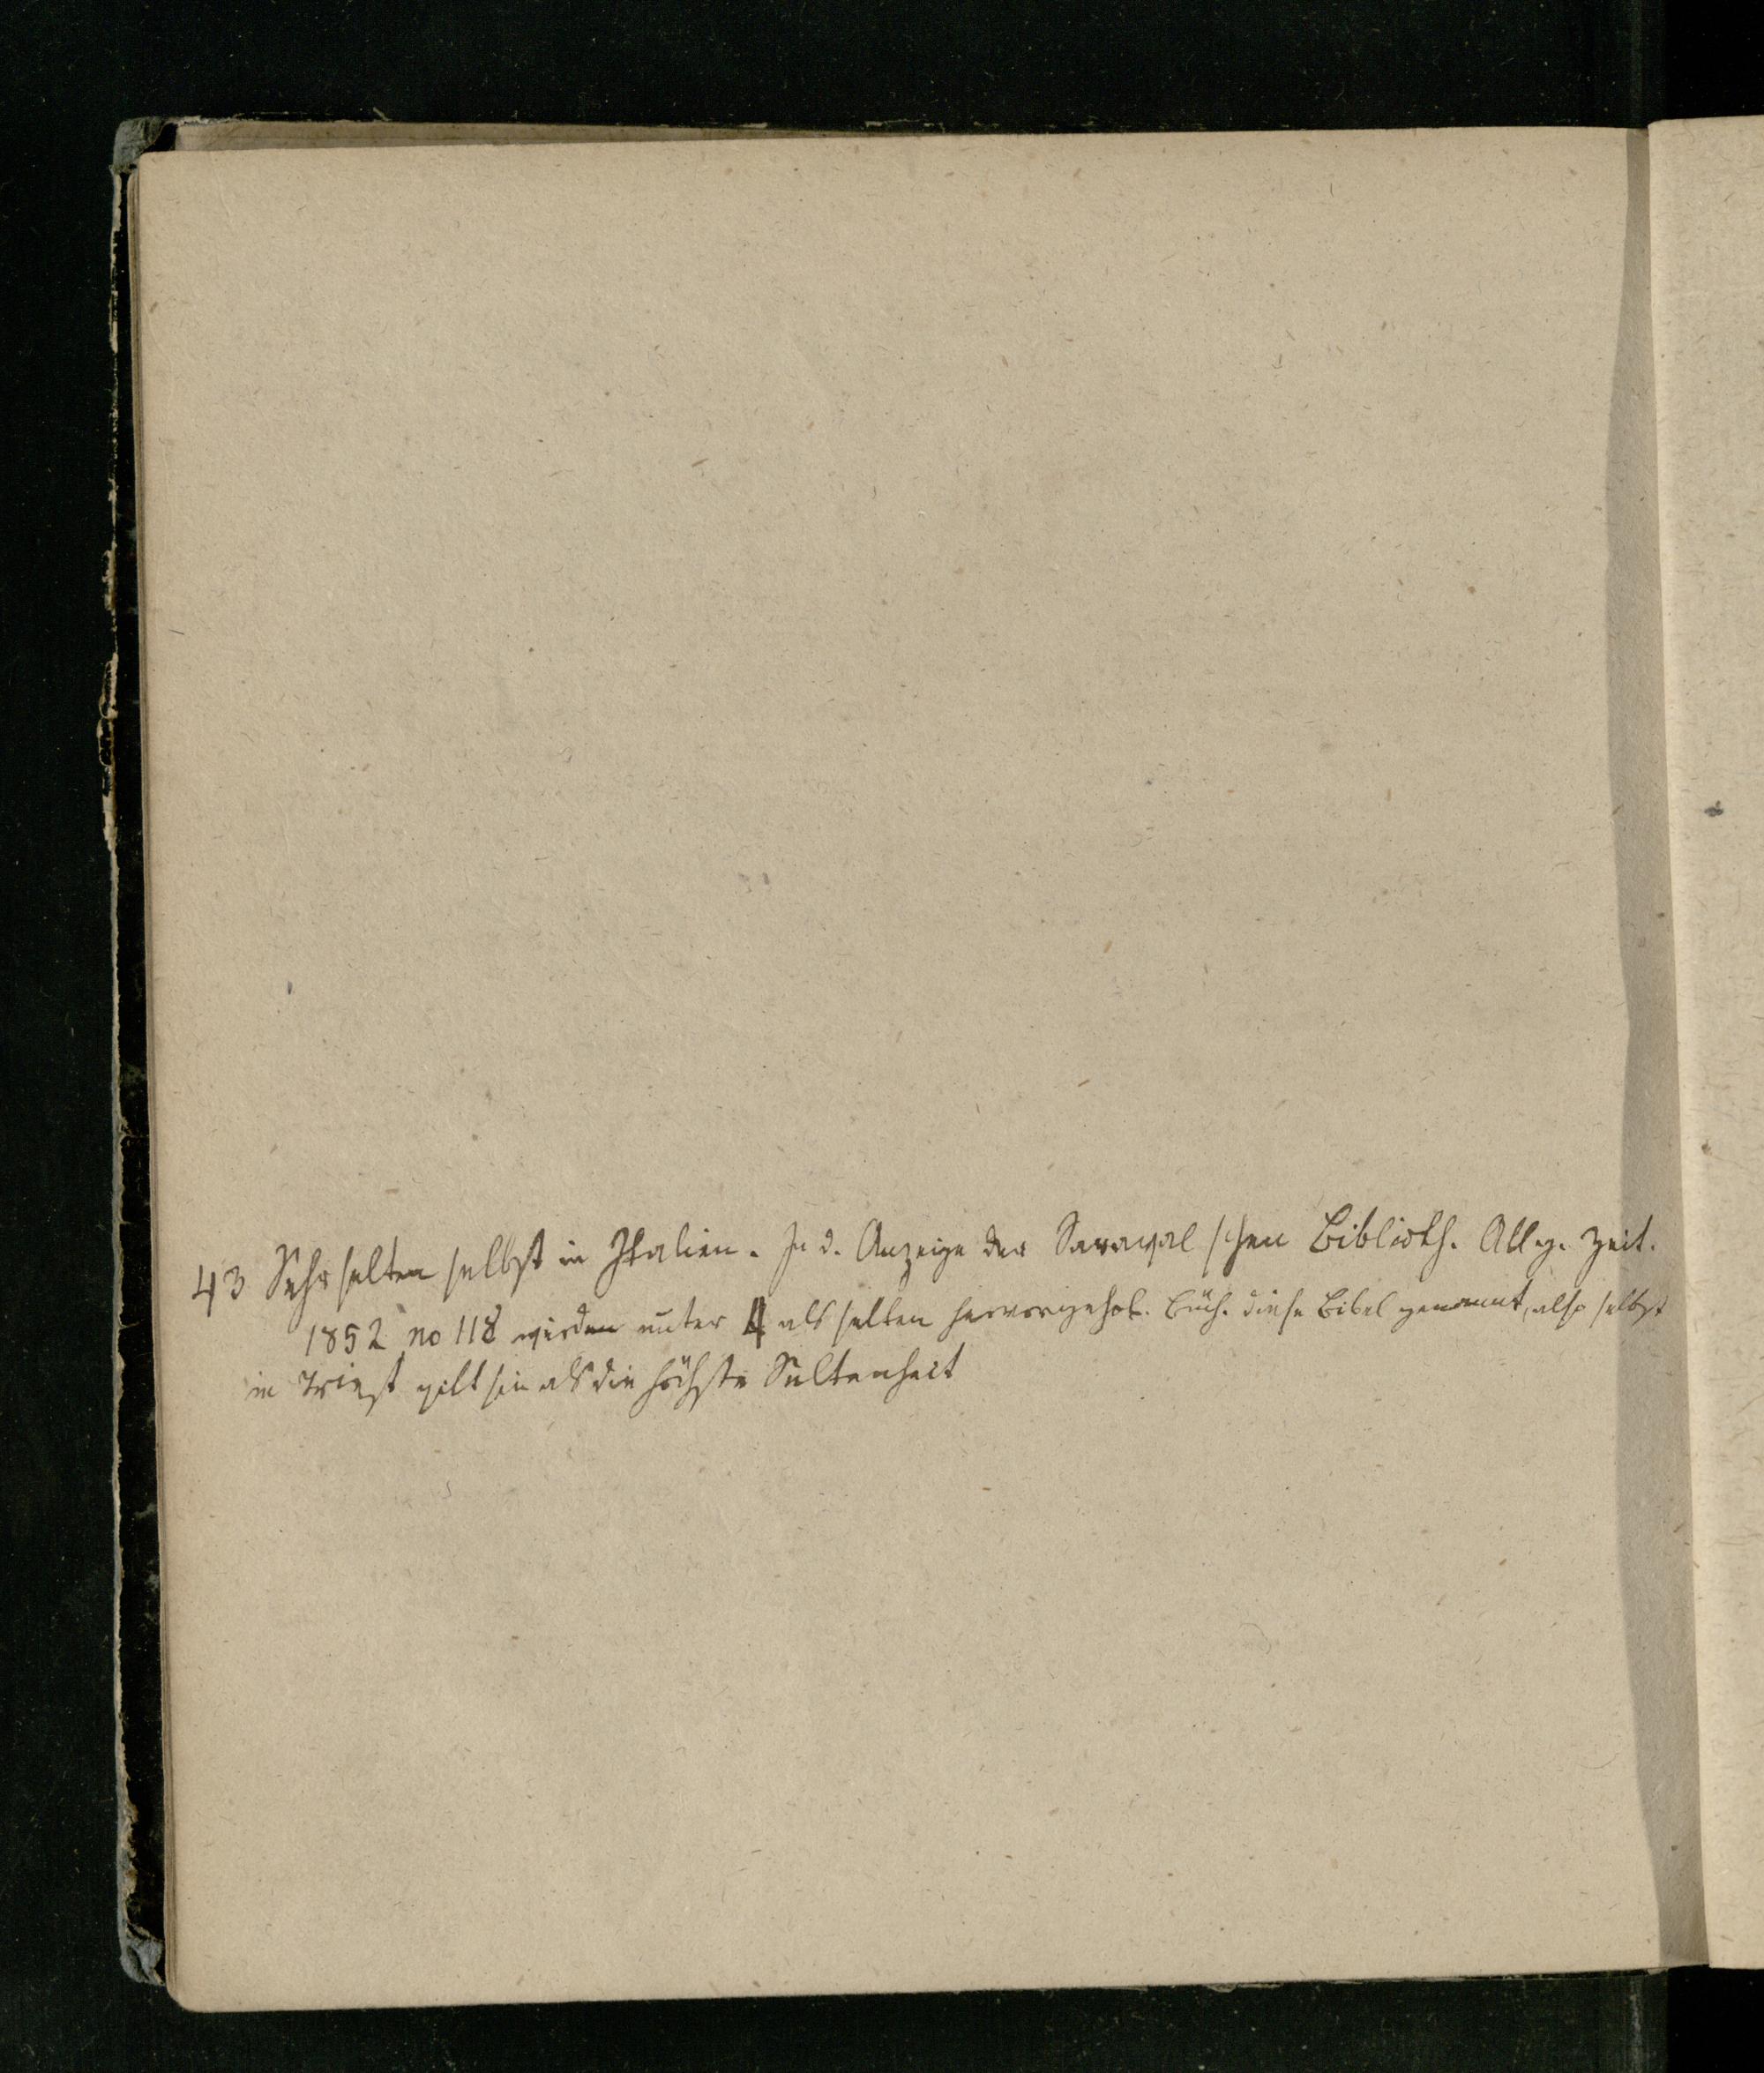 43 Sehr selten selbst in Italien. In d. Anzeige der Saraval'schen Biblioth. Allg. Zeit.
1852 no 118 wird unter 4 als selten hervorgehob. Büch. diese Bibel genannt, also selbst
in Triest gilt sie als die höchste Seltenheit